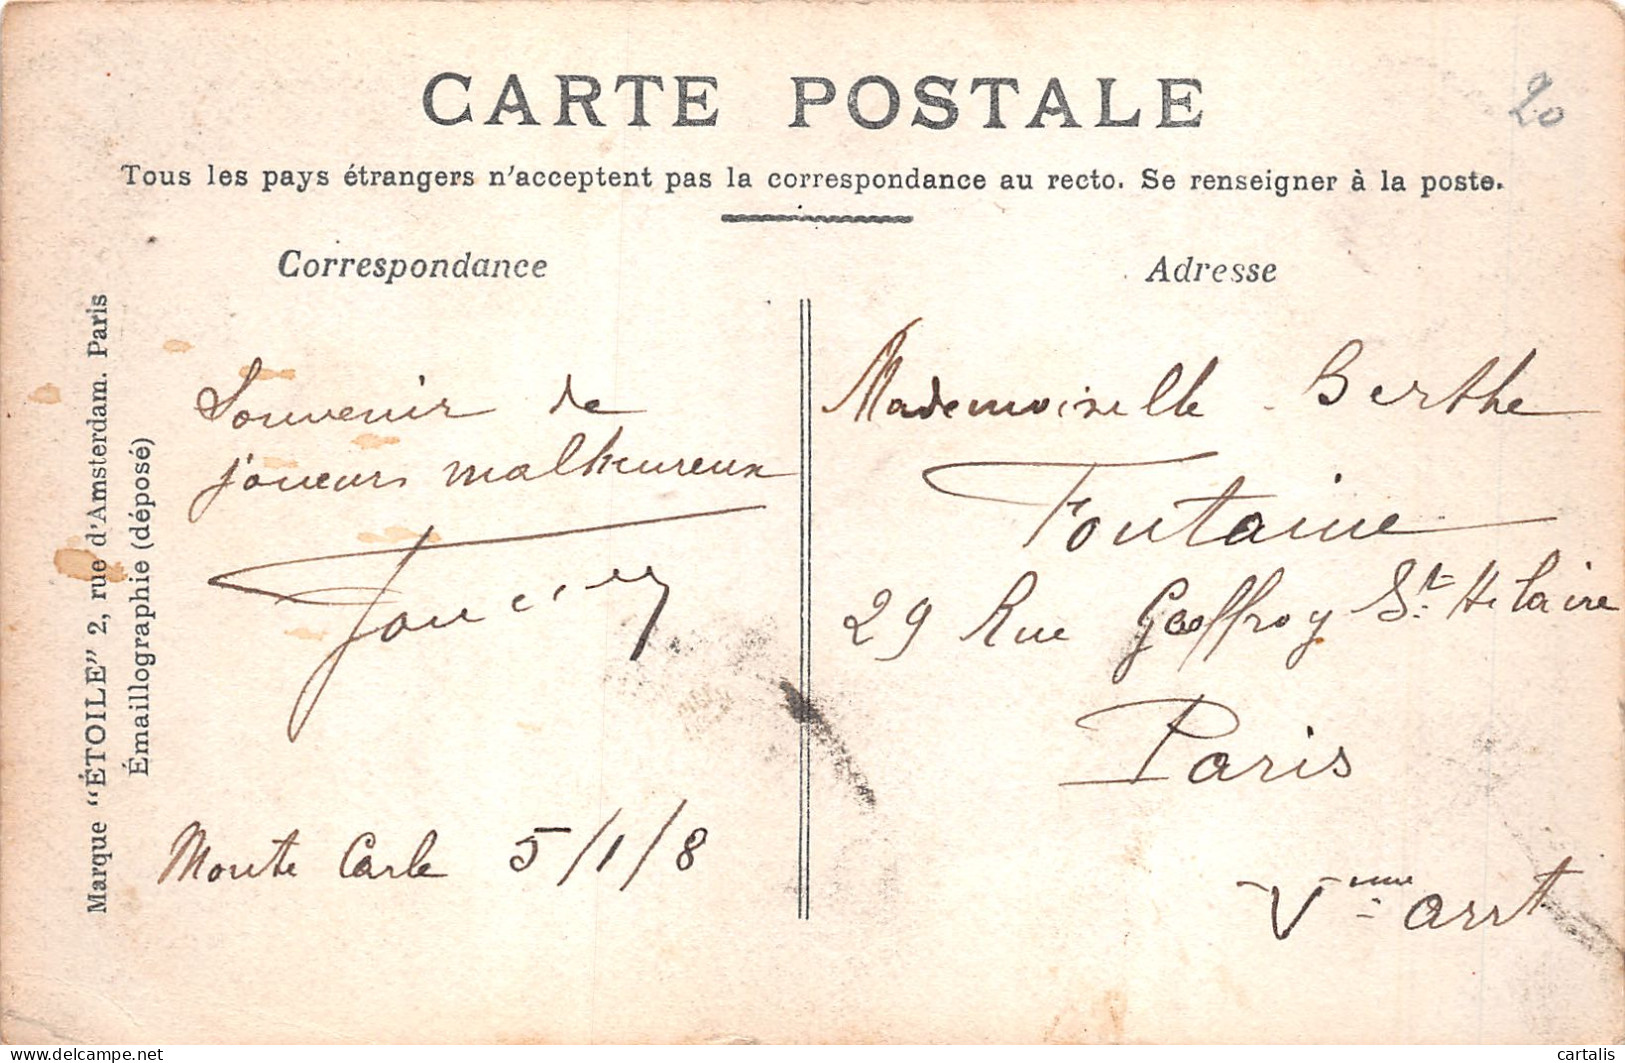 CARTE POSTALE
20
Tous les pays étrangers n'acceptent pas la correspondance au recto. Se renseigner à la poste.
Correspondance
Souvenir de
joueurs malheureux
Monte Carle 5/1/8
Adresse
Mademoiselle Berthe
Fontaine
29 Rue Geoffroy St. Hilaire
Paris
Vème arrt
Marque "ÉTOILE" 2, rue d'Amsterdam. Paris
Émaillographie (déposé)
cartalis